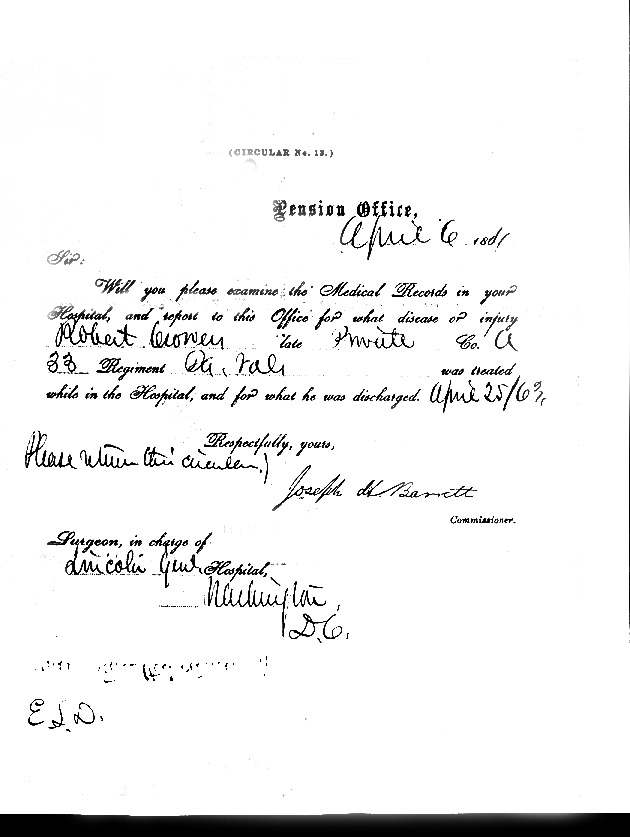 (CIRCULAR No. 13.)
Pension Office,
April 6 186
Sir:
Will you please examine the Medical Records in your
Hospital, and report to this Office for what disease or injury
Robert late Private Co. A
33 Regiment Vols was treated
while in the Hospital, and for what he was discharged. April 25/63,
Respectfully, yours,
Please return this circular.)
Joseph H Barrett
Commissioner.
Surgeon, in charge of
Lincoln Genl Hospital,
Washington,
D.C.